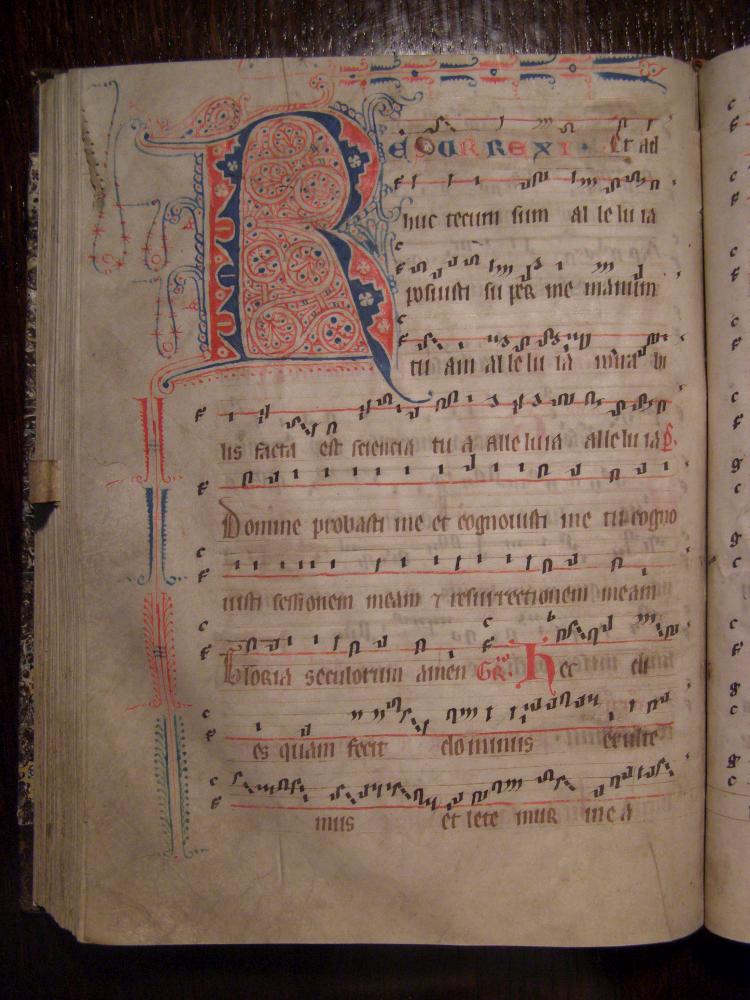 RESURREXI. Et ad
huc tecum sum al le lu ia
posuisti su per me manum
tu am al le lu ia mira bi
lis facta est sciencia tu a alle luia alle lu ia P.
Domine probasti me et cognouisti me tu cogno
uisti sessionem meam ⁊ resurrectionem meam
Gloria seculorum amen Gr. Hec di
es quam fecit do minus exulte
mus et lete mur in e a